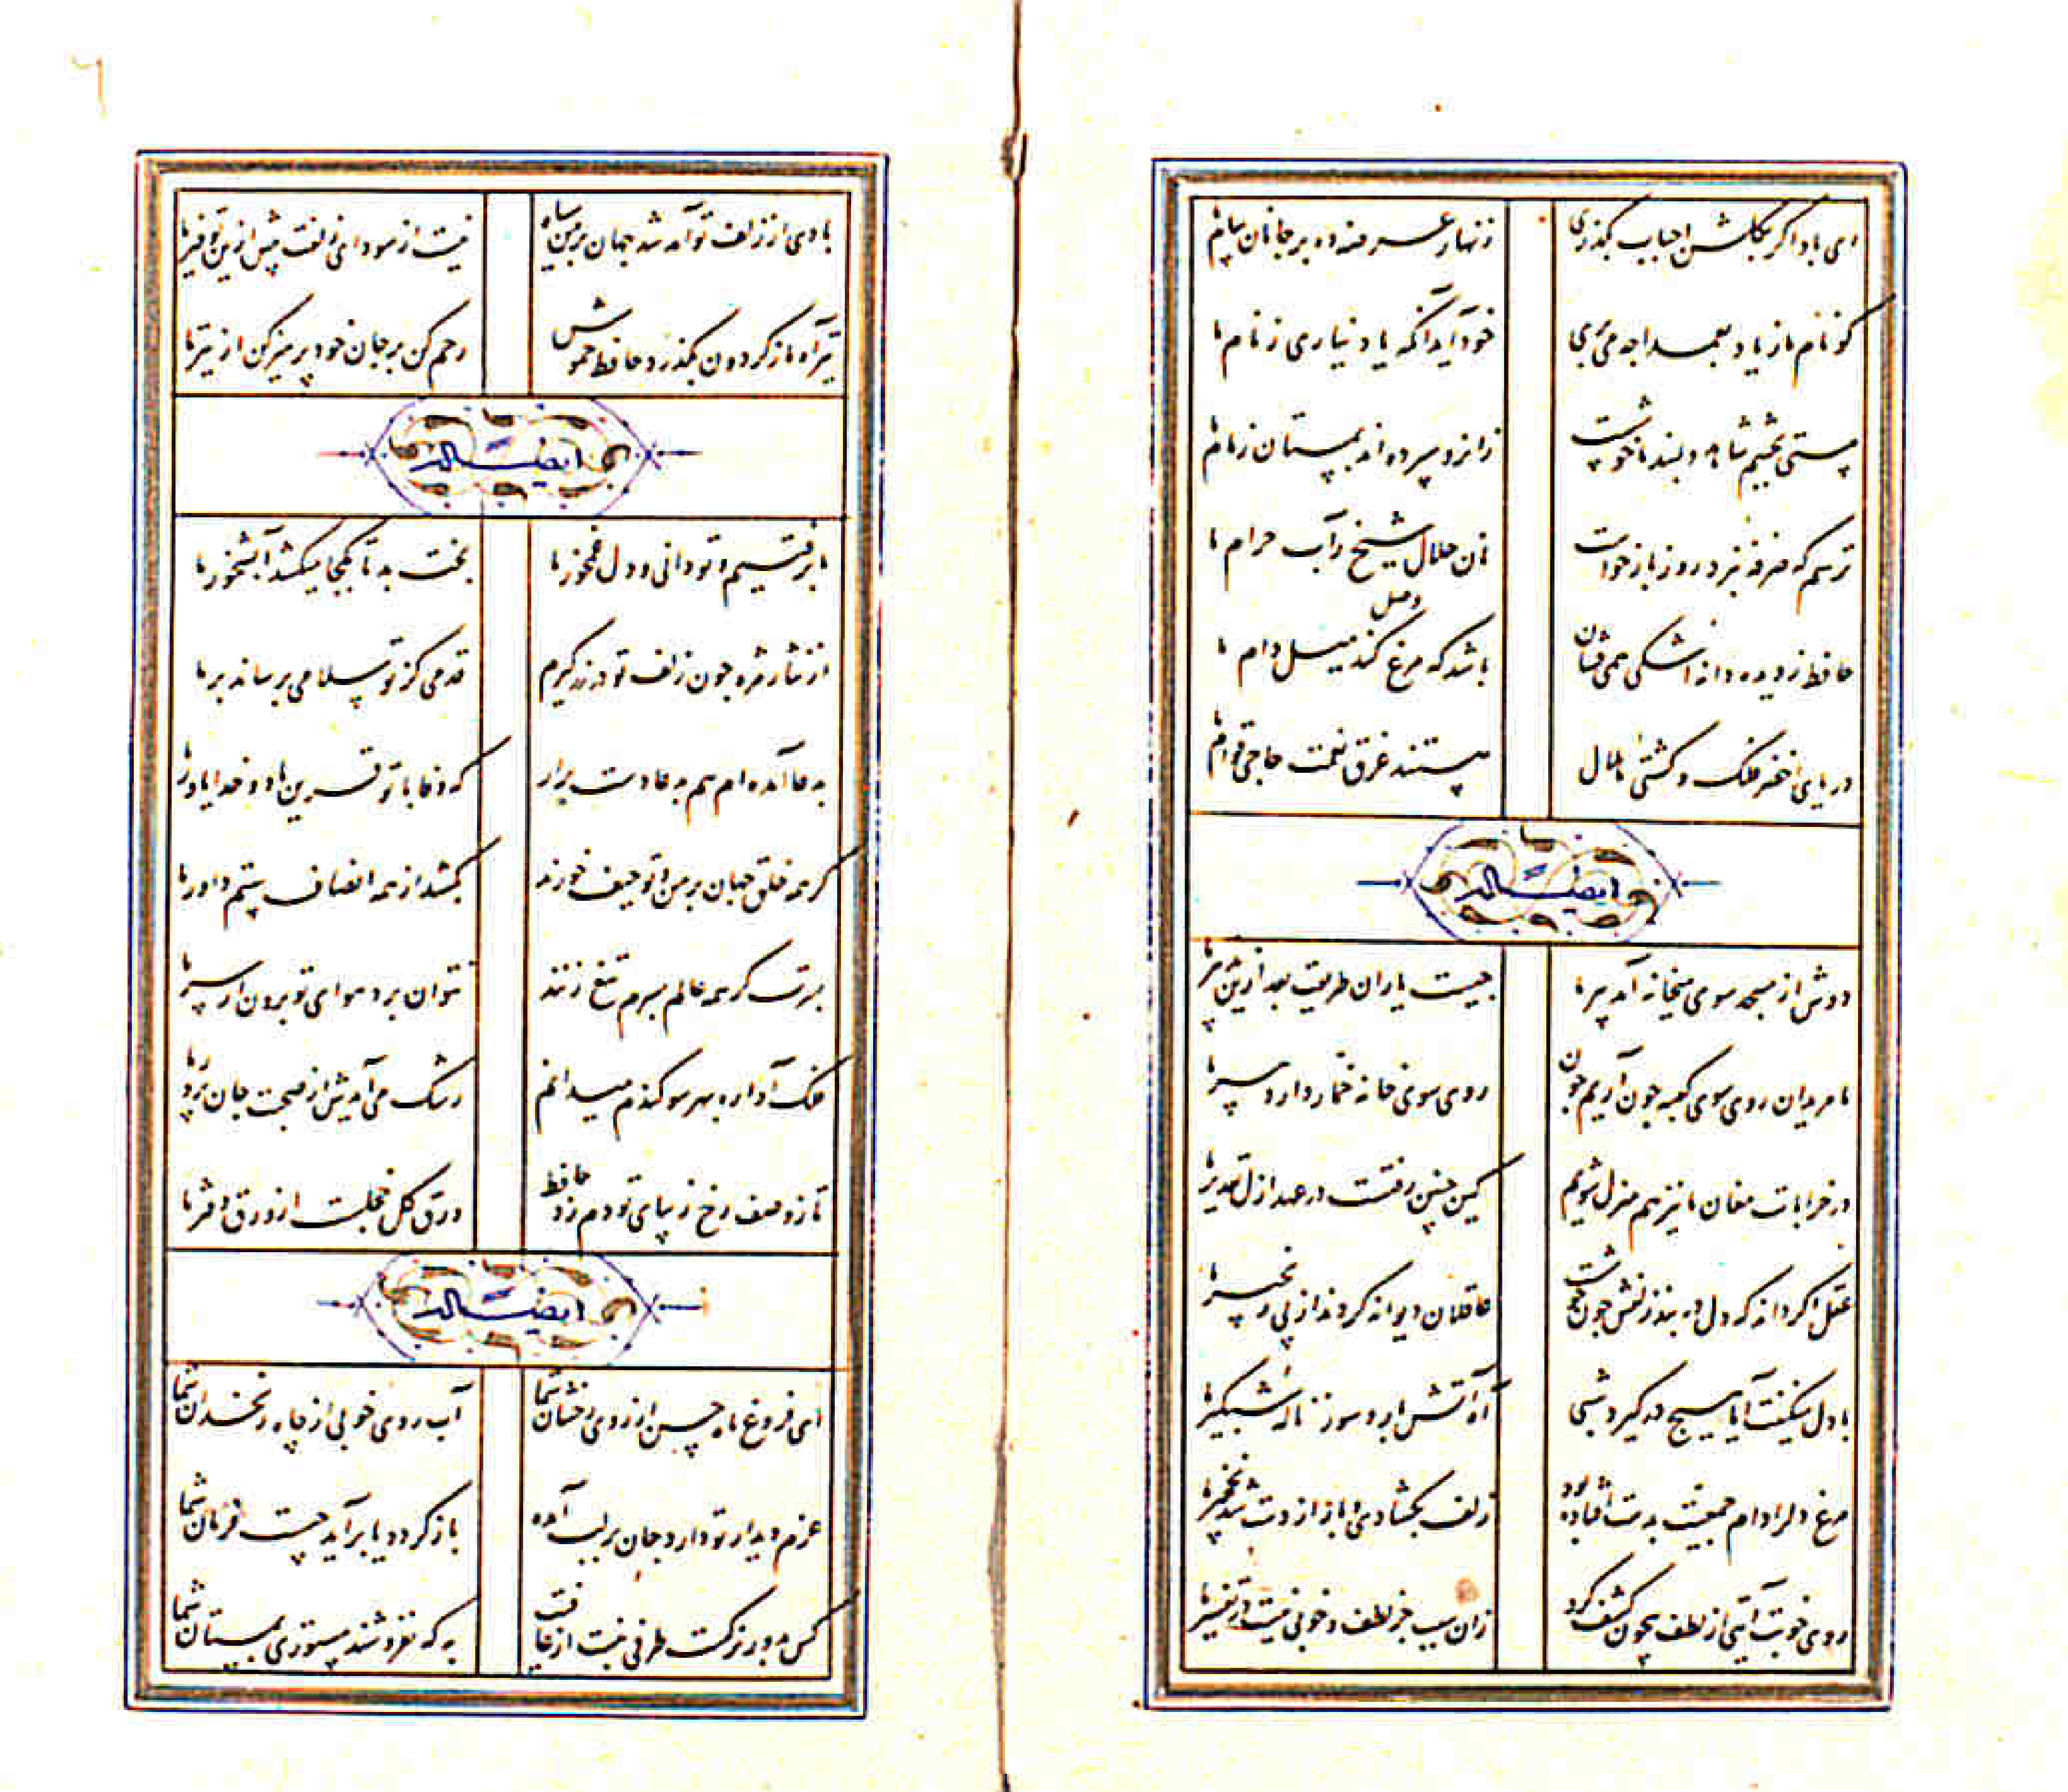 ای باد اگر بگلشن احباب بگذری
زنهار عرضه ده بر جانان پیام ما
گو نام ما ز یاد بعمدا چه می‌بری
خود آید آنکه یاد نیاری ز نام ما
مستی بچشم شاهد دلبند ما خوشست
زانرو سپرده‌اند بمستان زمام ما
ترسم که صرفه نبرد روز بازخواست
نان حلال شیخ ز آب حرام ما
حافظ ز دیده دانه اشکی همی فشان
باشد که مرغ وصل کند میل دام ما
دریای اخضر فلک و کشتی هلال
هستند غرق نعمت حاجی قوام ما
ایضاله
دوش از مسجد سوی میخانه آمد پیر ما
چیست یاران طریقت بعد ازین تدبیر ما
ما مریدان روی سوی کعبه چون آریم چون
روی سوی خانه خمار دارد پیر ما
در خرابات مغان ما نیز هم منزل شویم
کین چنین رفتست در عهد ازل تقدیر ما
عقل اگر داند که دل در بند زلفش چون خوشست
عاقلان دیوانه گردند از پی زنجیر ما
با دل سنگینت آیا هیچ در گیرد شبی
آه آتش بار و سوز ناله شبگیر ما
مرغ دلرا دام جمعیت بدست افتاده بود
زلف بگشادی و باز از دست شد نخجیر ما
روی خوبت آیتی از لطف بر ما کشف کرد
زان سبب جز لطف و خوبی نیست در تفسیر ما
بادی از زلف تو آمد شد جهان بر من سیاه
نیست از سودای زلفت بیش ازین توفیر ما
تیر آه ما ز گردون بگذرد حافظ خموش
رحم کن بر جان خود پرهیز کن از تیر ما
ایضاله
ما برفتیم و تو دانی و دل غمخور ما
بخت بد تا بکجا میکشد آبشخور ما
از نثار مژه چون زلف تو در زر گیرم
قدمی کز تو سلامی برساند بر ما
بدعا آمده‌ام هم بدعا دست برار
که وفا با تو قرین باد و خدا یاور ما
گر همه خلق جهان بر من و تو حیف خورند
بکشد از همه انصاف ستم داور ما
بسرت گر همه عالم بسرم تیغ زنند
نتوان برد هوای تو برون از سر ما
فلک آواره بهر سو کندم میدانم
رشک می‌آیدش از صحبت جان پرور ما
تا ز وصف رخ زیبای تو دم زد حافظ
ورق گل خجلست از ورق دفتر ما
ایضاله
ای فروغ ماه حسن از روی رخشان شما
آب روی خوبی از چاه زنخدان شما
عزم دیدار تو دارد جان بر لب آمده
باز گردد یا برآید چیست فرمان شما
کس بدور نرگست طرفی نبست از عافیت
به که نفروشند مستوری بمستان شما
۶